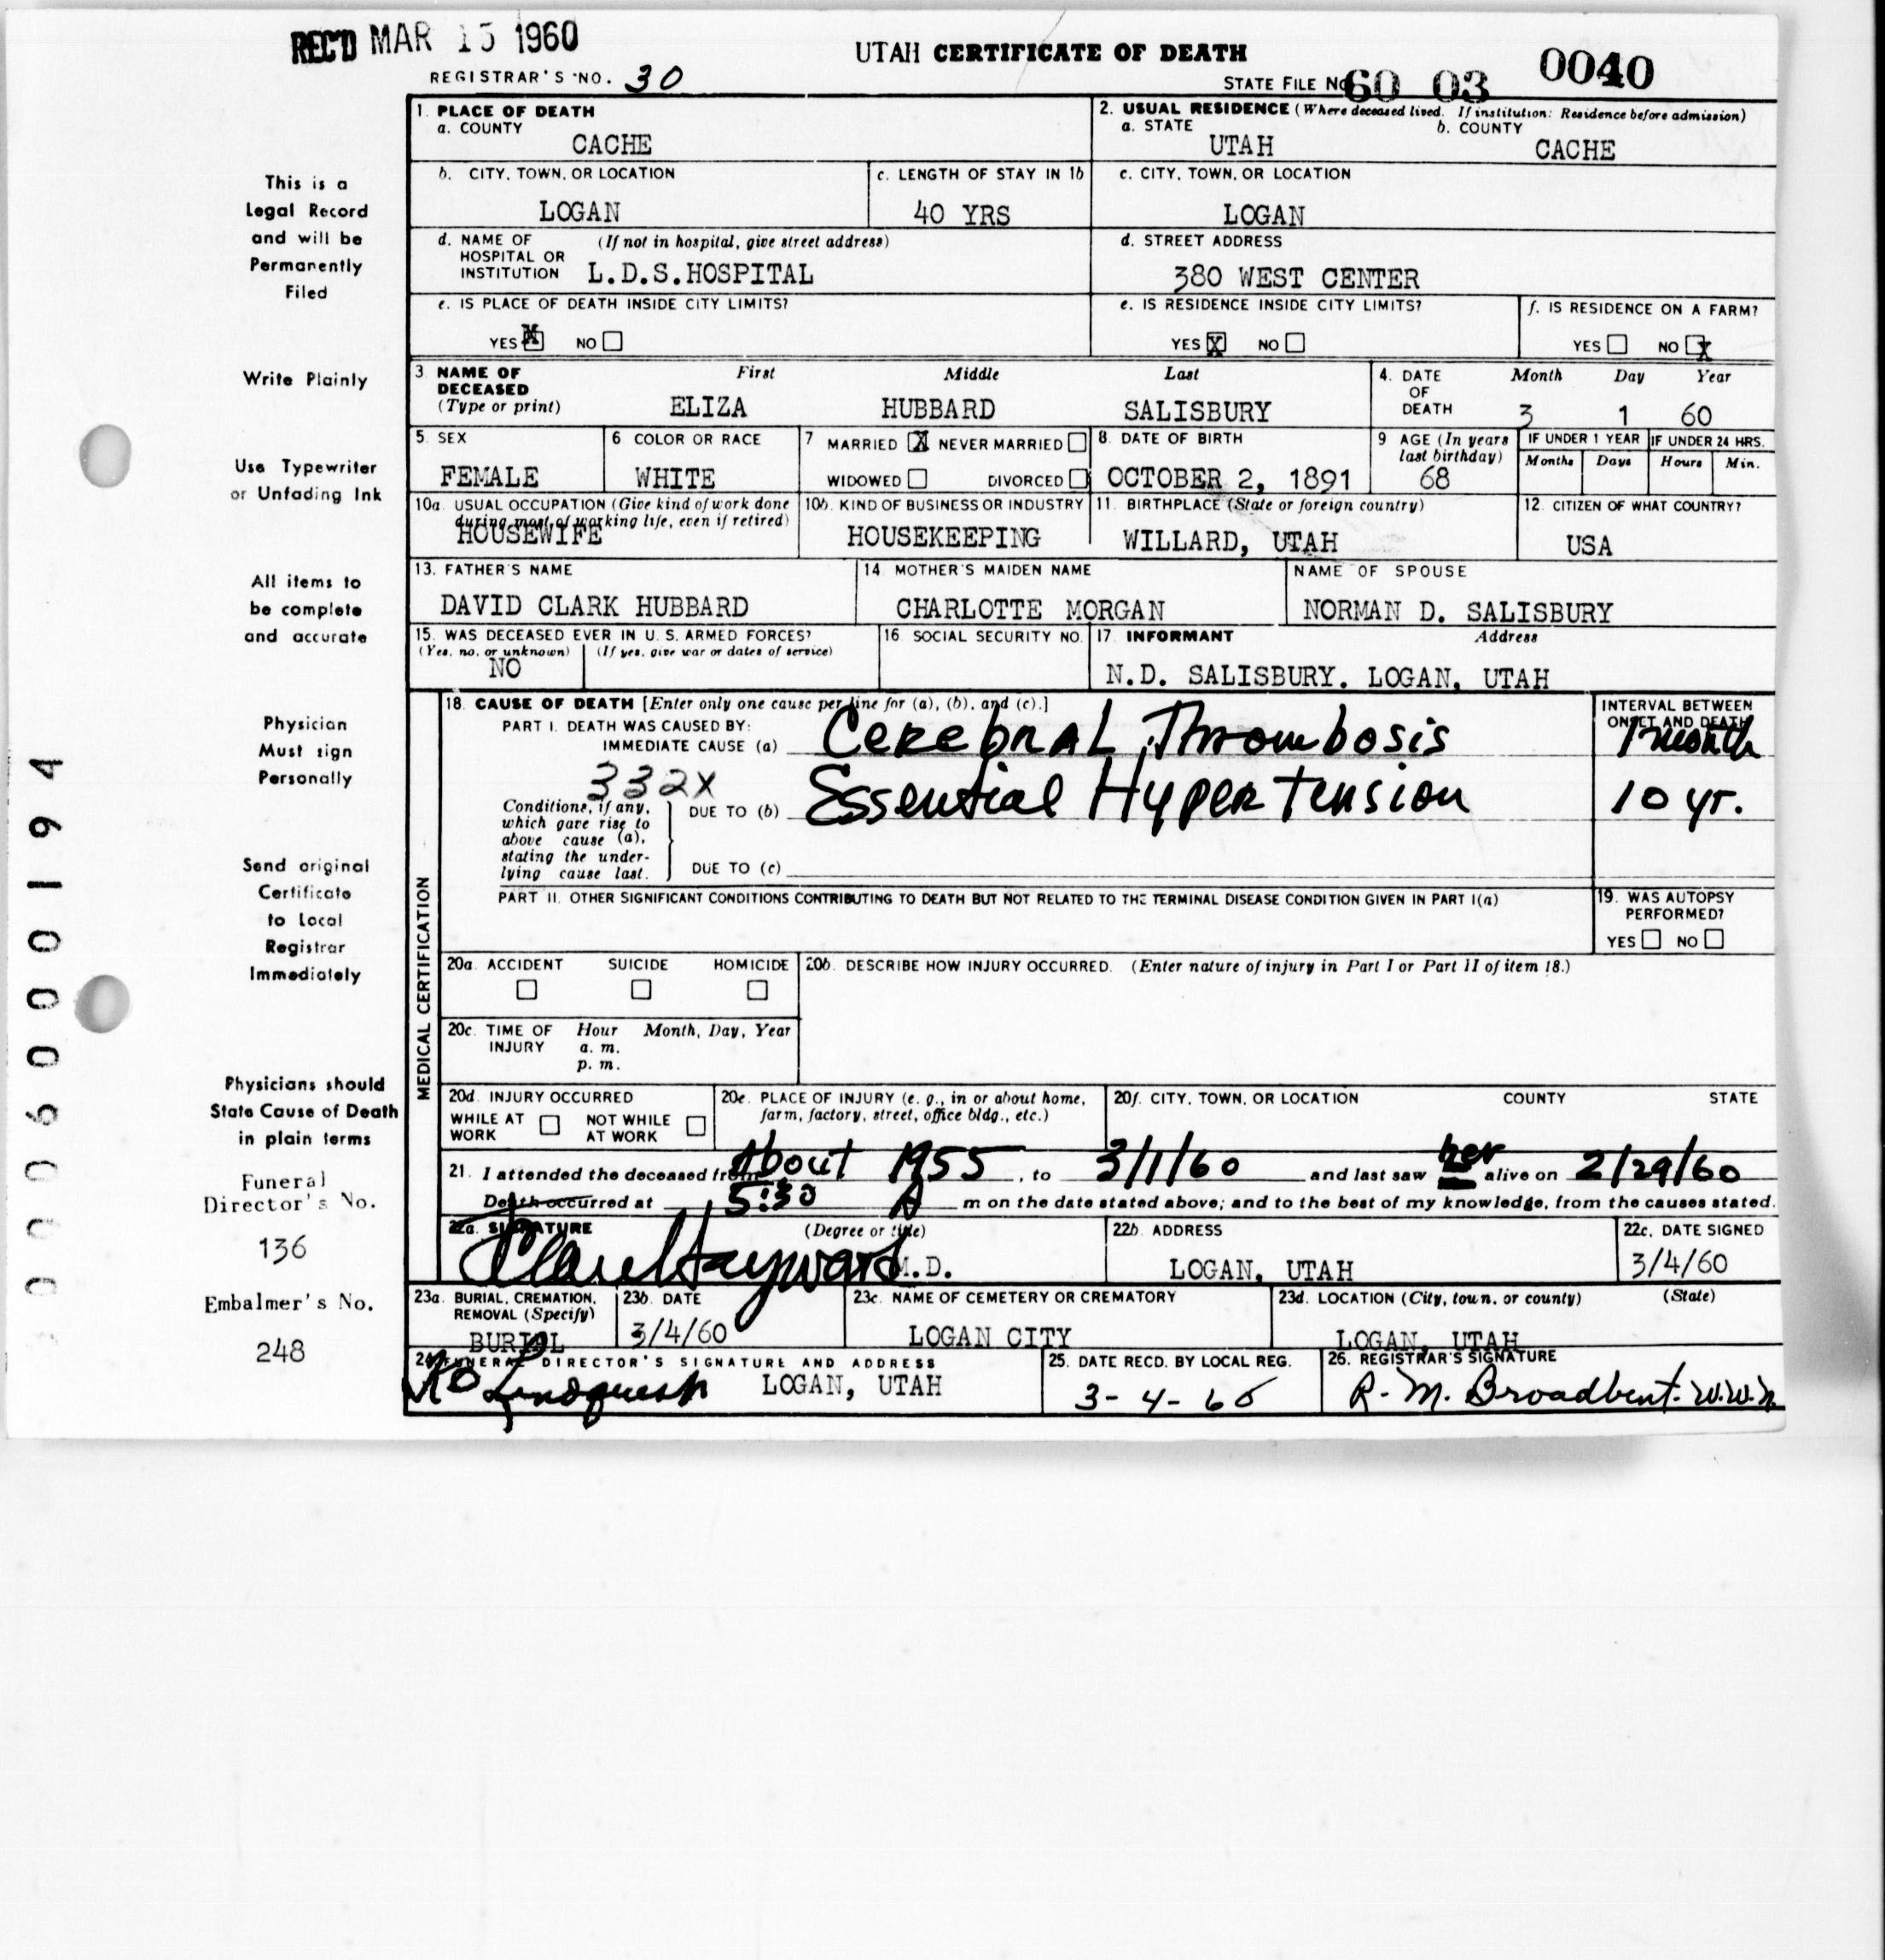 REC'D MAR 15 1960
UTAH CERTIFICATE OF DEATH
REGISTRAR'S NO. 30
STATE FILE NO. 60 03 0040
This is a
Legal Record
and will be
Permanently
Filed
Write Plainly
Use Typewriter
or Unfading Ink
All items to
be complete
and accurate
Physician
Must sign
Personally
Send original
Certificate
to Local
Registrar
Immediately
Physicians should
State Cause of Death
in plain terms
Funeral
Director's No.
136
Embalmer's No.
248
000600194
1. PLACE OF DEATH
a. COUNTY
CACHE
2. USUAL RESIDENCE (Where deceased lived. If institution: Residence before admission)
a. STATE b. COUNTY
UTAH CACHE
b. CITY, TOWN, OR LOCATION
LOGAN
c. LENGTH OF STAY IN 1b
40 YRS
c. CITY, TOWN, OR LOCATION
LOGAN
d. NAME OF (If not in hospital, give street address)
HOSPITAL OR
INSTITUTION L.D.S.HOSPITAL
d. STREET ADDRESS
380 WEST CENTER
e. IS PLACE OF DEATH INSIDE CITY LIMITS?
YES X NO
e. IS RESIDENCE INSIDE CITY LIMITS?
YES X NO
f. IS RESIDENCE ON A FARM?
YES NO X
3. NAME OF First Middle Last
DECEASED
(Type or print) ELIZA HUBBARD SALISBURY
4. DATE Month Day Year
OF
DEATH 3 1 60
5. SEX
FEMALE
6 COLOR OR RACE
WHITE
7 MARRIED X NEVER MARRIED
WIDOWED DIVORCED
8. DATE OF BIRTH
OCTOBER 2, 1891
9 AGE (In years
last birthday)
68
IF UNDER 1 YEAR IF UNDER 24 HRS.
Months Days Hours Min.
10a. USUAL OCCUPATION (Give kind of work done
during most of working life, even if retired)
HOUSEWIFE
10b. KIND OF BUSINESS OR INDUSTRY
HOUSEKEEPING
11. BIRTHPLACE (State or foreign country)
WILLARD, UTAH
12. CITIZEN OF WHAT COUNTRY?
USA
13. FATHER'S NAME
DAVID CLARK HUBBARD
14. MOTHER'S MAIDEN NAME
CHARLOTTE MORGAN
NAME OF SPOUSE
NORMAN D. SALISBURY
15. WAS DECEASED EVER IN U. S. ARMED FORCES?
(Yes, no, or unknown) (If yes, give war or dates of service)
NO
16. SOCIAL SECURITY NO.
17. INFORMANT Address
N.D. SALISBURY. LOGAN, UTAH
MEDICAL CERTIFICATION
18. CAUSE OF DEATH [Enter only one cause per line for (a), (b), and (c).]
PART I. DEATH WAS CAUSED BY:
IMMEDIATE CAUSE (a) Cerebral Thrombosis
INTERVAL BETWEEN
ONSET AND DEATH
1 month
332X
Conditions, if any,
which gave rise to
above cause (a),
stating the under-
lying cause last.
DUE TO (b) Essential Hypertension
10 yr.
DUE TO (c)
PART II. OTHER SIGNIFICANT CONDITIONS CONTRIBUTING TO DEATH BUT NOT RELATED TO THE TERMINAL DISEASE CONDITION GIVEN IN PART I(a)
19. WAS AUTOPSY
PERFORMED?
YES NO
20a. ACCIDENT SUICIDE HOMICIDE
20b. DESCRIBE HOW INJURY OCCURRED. (Enter nature of injury in Part I or Part II of item 18.)
20c. TIME OF Hour Month, Day, Year
INJURY a. m.
p. m.
20d. INJURY OCCURRED
WHILE AT NOT WHILE
WORK AT WORK
20e. PLACE OF INJURY (e. g., in or about home,
farm, factory, street, office bldg., etc.)
20f. CITY, TOWN, OR LOCATION COUNTY STATE
21. I attended the deceased from About 1955, to 3/1/60 and last saw her alive on 2/29/60
Death occurred at 5:30 A m on the date stated above; and to the best of my knowledge, from the causes stated.
22a. SIGNATURE (Degree or title)
Hayward M.D.
22b. ADDRESS
LOGAN, UTAH
22c. DATE SIGNED
3/4/60
23a. BURIAL, CREMATION,
REMOVAL (Specify)
BURIAL
23b. DATE
3/4/60
23c. NAME OF CEMETERY OR CREMATORY
LOGAN CITY
23d. LOCATION (City, town, or county) (State)
LOGAN, UTAH
24. FUNERAL DIRECTOR'S SIGNATURE AND ADDRESS
Lindquist LOGAN, UTAH
25. DATE RECD. BY LOCAL REG.
3-4-60
26. REGISTRAR'S SIGNATURE
R. M. Broadbent. W.W.N.